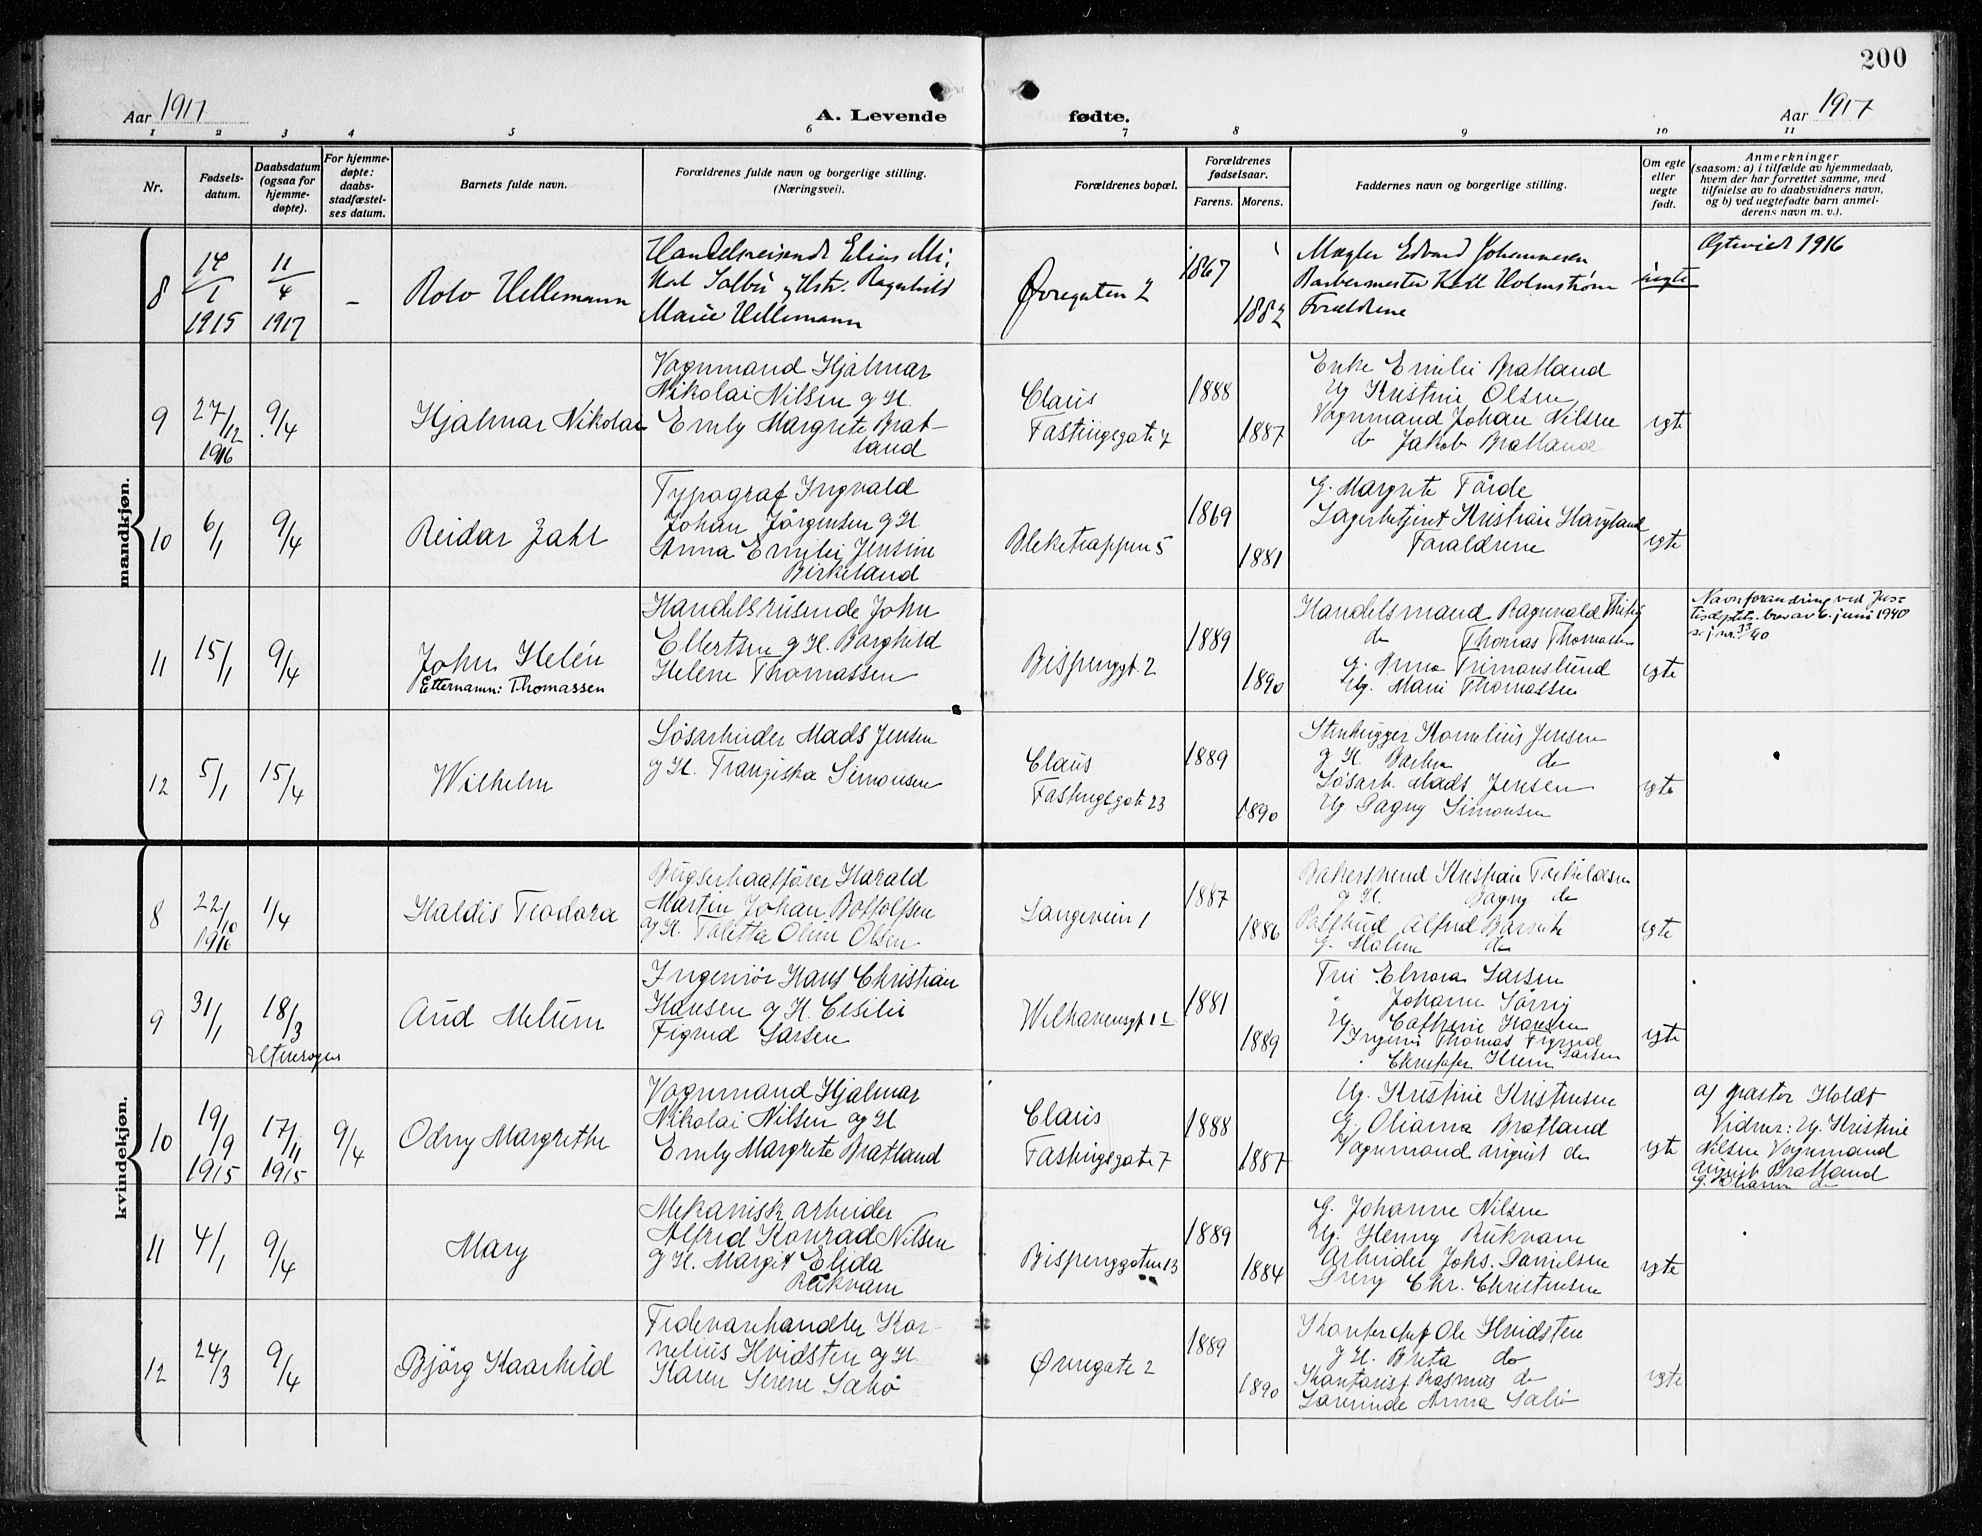 200
Aar 1917
A. Levende
fødte.
Aar 1917
1 2 3 4 5 6 7 8 9 10 11
Nr.
Fødsels-
datum.
Daabsdatum
(ogsaa for
hjemme-
døpte).
For hjemme-
døpte:
daabs-
stadfæstel-
ses datum.
Barnets fulde navn.
Forældrenes fulde navn og borgerlige stilling.
(Næringsvei).
Forældrenes bopæl.
Forældrenes
fødselsaar.
Farens. Morens.
Faddernes navn og borgerlige stilling.
Om egte
eller
uegte
født.
Anmerkninger
(saasom: a) i tilfælde av hjemmedaab,
hvem der har forrettet samme, med
tilføielse av to daabsvidners navn,
og b) ved uegtefødte barn anmel-
derens navn m. v.).
mandkjøn.
8
14/1
1915
11/4
1917
–
Rolv Hellemann
Handelsreisende Elias Mi-
Marie Hellemann
Øvregaten 2
1867
1882
Mægler Edvard Johannesen
Barbermester Ketil Holmstrøm
Forældrene
uegte
Egteviet 1916
9
27/12
1916
9/4
Hjalmar Nikolai
Vognmand Hjalmar
Nikolai Nilsen og H.
Emly Margrete Brat-
land
Claus
Fastingsgate 7
1888
1887
Enke Emilie Bratland
Ug. Kristine Olsen
Vognmand Johan Nilsen
do Jakob Bratland
egte
10
6/1
9/4
Reidar Zahl
Typograf Ingvald
Johan Jørgensen og H
Anna Emilie Jensine
Birkeland
Bleketrappen 5
1869
1881
G. Margrete Førde
Lagerbetjent Kristian Haugland
Forældrene
egte
11
15/1
9/4
John Helén
Etternamn: Thomassen
Handelsreisende John
Ellertsen og H. Borghild
Helene Thomassen
Bispenggt. 2
1889
1890
Handelsmand Ragnvald
do Thomas Thomassen
G. Anna
Ug. Marie Thomassen
egte
Navneforandring ved Jus-
tisdptets. brev av 6. juni 1940
se j.nr. 33/40
12
5/1
15/4
Wilhelm
Løsarbeider Mads Jensen
og H. Franziska Simonsen
Claus
Fastingsgate 23
1889
1890
Stenhugger Kornelius Jensen
og H. do
Løsarb. Mads Jensen
Ug Dagny Simonsen
egte
kvindekjøn.
8
22/10
1916
1/4
Haldis Teodora
Bugserbaatfører Harald
Martin Johan Botolfsen
og H. Taletta Oline Olsen
Langeveien 1
1887
1886
Bakersvend Kristian Torkildsen
og H. Dagny do
Postbud Alfred
G. Malene do
egte
9
31/1
18/3
Aud Melum
Ingeniør Hans Christian
Hansen og H. Cesilie
Figved Larsen
1881
1889
Fru Elnora Larsen
" Johanne
Ug. Cathrine Hansen
Ingeniør Thomas Figved
Larsen
egte
10
19/9
1915
17/11
1915
9/4
Odny Margrethe
Vognmand Hjalmar
Nikolai Nilsen og H
Emly Margrete Bratland
Claus
Fastingsgate 7
1888
1887
Ug. Kristine Kristensen
G. Olianna Bratland
Vognmand August do
egte
af pastor Holdt
Vidner: Ug. Kristine
Nilsen Vognmand
August Bratland
G. Olianna do
11
4/1
9/4
Mary
Mekanisk arbeider
Alfred Konrad Nilsen
og H. Margit Elida
Rükvam
Bispenggaten 13
1889
1884
G. Johanne Nilsen
Ug. Henny Rükvam
Arbeider Johs. Danielsen
Chr. Christensen
egte
12
24/3
9/4
Bjørg Kaarhild
Fedevarehandler Kor-
nelius Hvidsten og H.
Karen Serene Sabø
Øvregate 2
1889
1890
Kontorchef Ole Hvidsten
og H. Breta do
Kontorist Rasmus do
Lærerinde Anna Sabø
egte